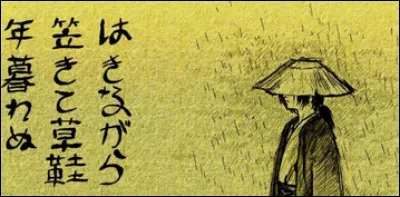 はきながら
笠きて草鞋
年暮れぬ